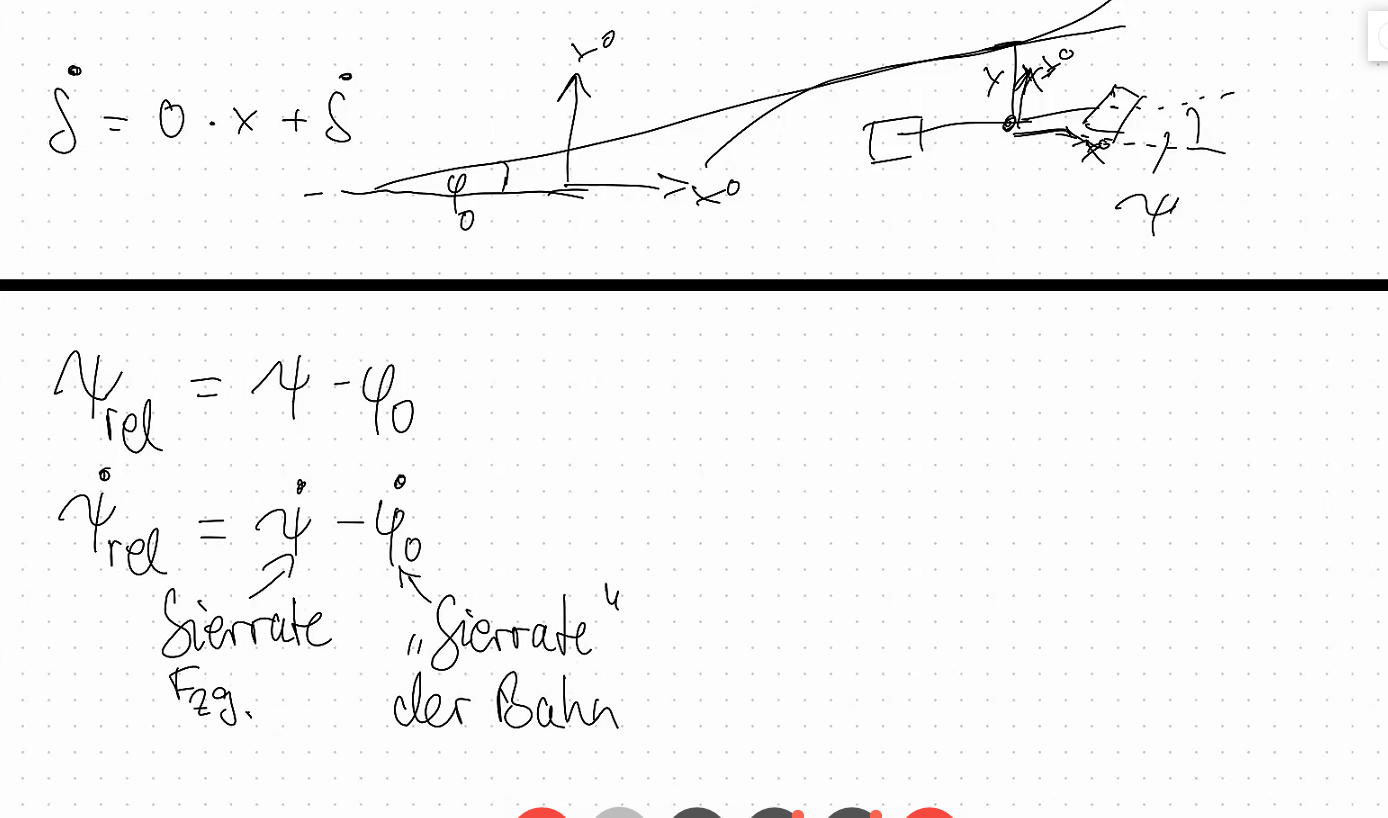 δ̇ = 0 · x + δ̇
y⁰
x⁰
φ₀
y
y⁰
x⁰
ψ
ψ_rel = ψ - φ₀
ψ̇_rel = ψ̇ - φ̇₀
Gierrate „Gierrate“
Fzg. der Bahn